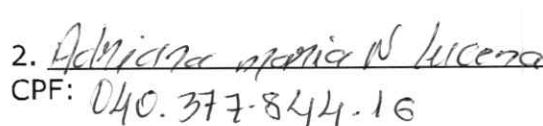 2. Adriana maria N Lucena
CPF: 040.377.844.16